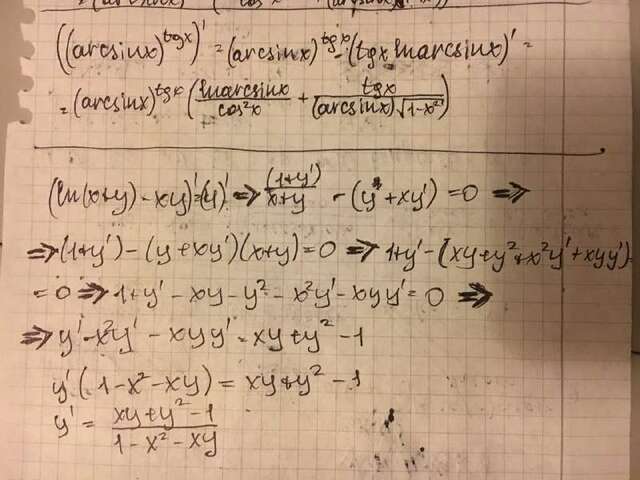 ((arcsinx)^tgx)' = (arcsinx)^tgx · (tgx lnarcsinx)' =
= (arcsinx)^tgx (lnarcsinx / cos²x + tgx / (arcsinx)√1-x²)
(ln(x+y) - xy)' = (1)' ⇒ (1+y') / x+y - (y + xy') = 0 ⇒
⇒ (1+y') - (y + xy')(x+y) = 0 ⇒ 1+y' - (xy + y² + x²y' + xyy')
= 0 ⇒ 1+y' - xy - y² - x²y' - xyy' = 0 ⇒
⇒ y' - x²y' - xyy' = xy + y² - 1
y'(1 - x² - xy) = xy + y² - 1
y' = xy + y² - 1 / 1 - x² - xy